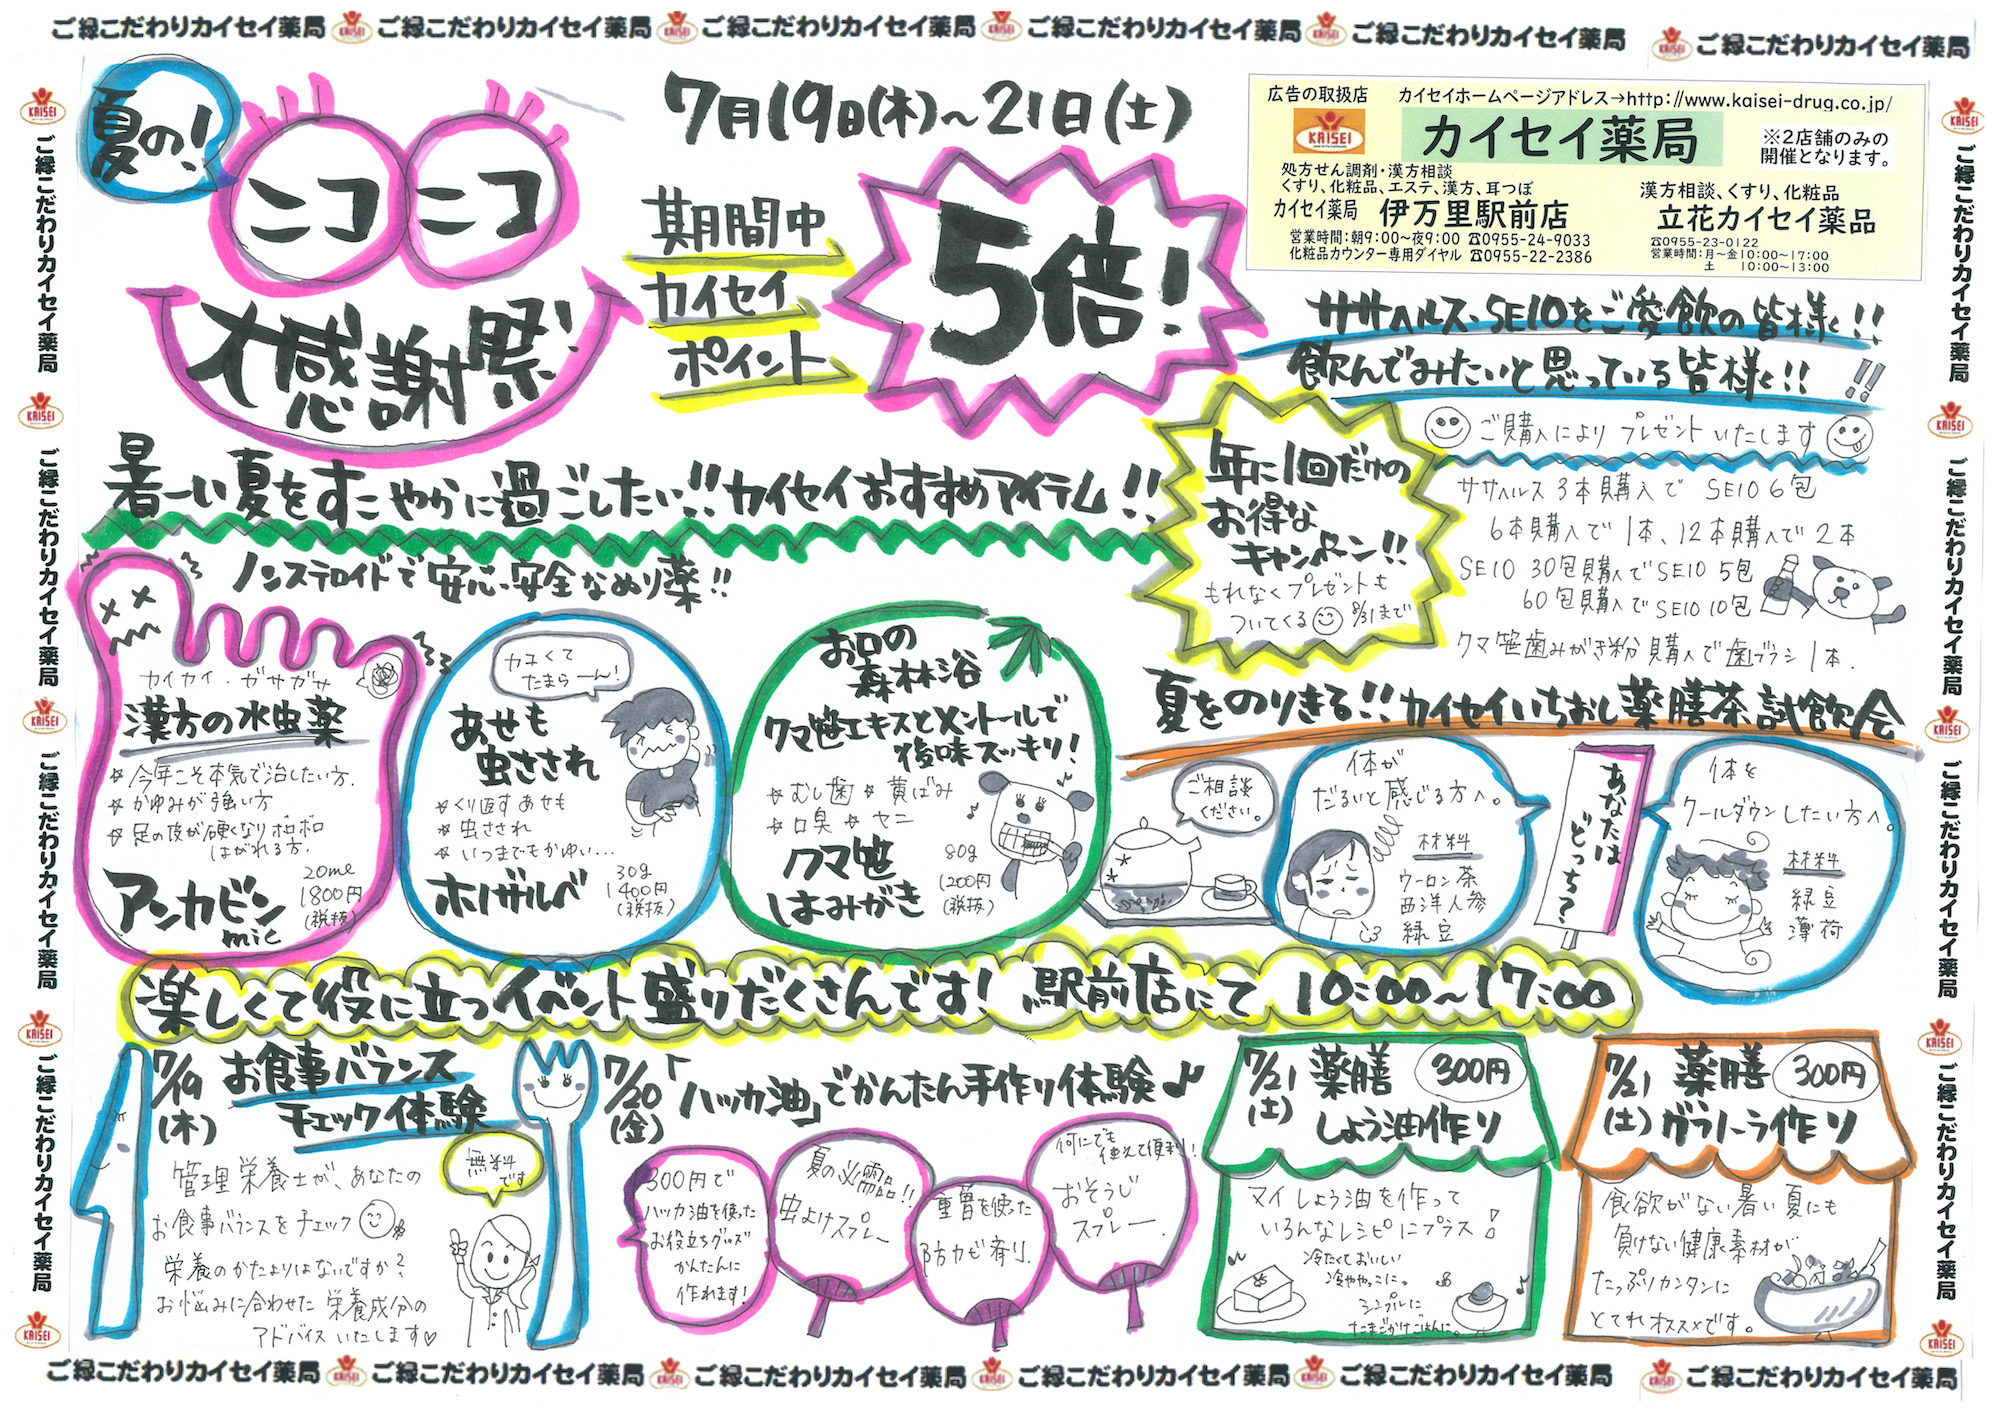 ご縁こだわりカイセイ薬局 KAISEI ご縁こだわりカイセイ薬局 KAISEI ご縁こだわりカイセイ薬局 KAISEI ご縁こだわりカイセイ薬局 KAISEI ご縁こだわりカイセイ薬局 KAISEI ご縁こだわりカイセイ薬局
KAISEI
ご縁こだわりカイセイ薬局
KAISEI
ご縁こだわりカイセイ薬局
KAISEI
ご縁こだわりカイセイ薬局
KAISEI
ご縁こだわりカイセイ薬局
KAISEI
夏の!
ニコニコ
大感謝祭!
7月19日(木)~21日(土)
期間中
カイセイ
ポイント
5倍!
広告の取扱店
カイセイホームページアドレス→http://www.kaisei-drug.co.jp/
KAISEI
カイセイ薬局
※2店舗のみの
開催となります。
処方せん調剤・漢方相談
くすり、化粧品、エステ、漢方、耳つぼ
カイセイ薬局 伊万里駅前店
営業時間:朝9:00~夜9:00 ☎0955-24-9033
化粧品カウンター専用ダイヤル ☎0955-22-2386
漢方相談、くすり、化粧品
立花カイセイ薬品
☎0955-23-0122
営業時間:月~金10:00~17:00
土 10:00~13:00
ササヘルス・SE10をご愛飲の皆様く!!
飲んでみたいと思っている皆様く!!
!!
ご購入によりプレゼントいたします
年に1回だけの
お得な
キャンペーン!!
もれなくプレゼントも
ついてくる 8/31まで
ササヘルス3本購入で SE10 6包
6本購入で1本、12本購入で2本
SE10 30包購入でSE10 5包
60包購入でSE10 10包
クマ笹歯みがき粉購入で歯ブラシ1本.
暑ーい夏をすこやかに過ごしたい!!カイセイおすすめアイテム!!
ノンステロイドで安心・安全なぬり薬!!
カイカイ・ガサガサ
漢方の水虫薬
☆今年こそ本気で治したい方.
☆かゆみが強い方
☆足の皮が硬くなりボロボロ
はがれる方.
アンカビン
mic
20ml
1800円
(税抜)
カユくて
たまらーん!
あせも
虫さされ
☆くり返すあせも
☆虫さされ
☆いつまでもかゆい...
ホノザルベ
30g
1400円
(税抜)
お口の
森林浴
クマ笹エキスとメントールで
後味スッキリ!
☆むし歯 ☆黄ばみ
☆口臭 ☆ヤニ
クマ笹
はみがき
80g
1200円
(税抜)
夏をのりきる!!カイセイいちおし薬膳茶試飲会
ご相談
ください。
体が
だるいと感じる方へ。
材料
ウーロン茶
西洋人参
緑豆
あなたは
どっち?
体を
クールダウンしたい方へ。
材料
緑豆
薄荷
楽しくて役に立つイベント盛りだくさんです! 駅前店にて 10:00~17:00
7/19(木)
お食事バランス
チェック体験
無料
です
管理栄養士が、あなたの
お食事バランスをチェック
栄養のかたよりはないですか?
お悩みに合わせた栄養成分の
アドバイスいたします♡
7/20(金)
「ハッカ油」でかんたん手作り体験♪
300円で
ハッカ油を使った
お役立ちグッズ
かんたんに
作れます!
夏の必需品!!
虫よけスプレー
重曹を使った
防カビ剤.
何にでも
使えて便利!!
おそうじ
スプレー
7/21(土)
薬膳
しょう油作り
300円
マイしょう油を作って
いろんなレシピにプラス!
冷たくておいしい
冷ややっこに。
シンプルに
たまごかけごはんに。
7/21(土)
薬膳
グラノーラ作り
300円
食欲がない暑い夏にも
負けない健康素材が
たっぷりカンタンに
とてれオススメです。
KAISEI
ご縁こだわりカイセイ薬局
KAISEI
ご縁こだわりカイセイ薬局
KAISEI
ご縁こだわりカイセイ薬局
KAISEI
ご縁こだわりカイセイ薬局
KAISEI
ご縁こだわりカイセイ薬局 KAISEI ご縁こだわりカイセイ薬局 KAISEI ご縁こだわりカイセイ薬局 KAISEI ご縁こだわりカイセイ薬局 KAISEI ご縁こだわりカイセイ薬局 KAISEI ご縁こだわりカイセイ薬局